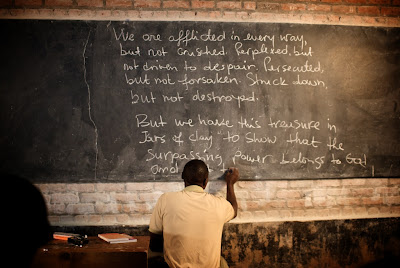 We are afflicted in every way,
but not crushed. Perplexed, but
not driven to despair. Persecuted,
but not forsaken. Struck down,
but not destroyed.
But we have this treasure in
Jars of clay "to show that the
surpassing power belongs to God
and